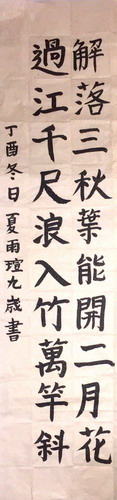 解落三秋葉能開二月花
過江千尺浪入竹萬竿斜
丁酉冬日夏雨瑄九歲書